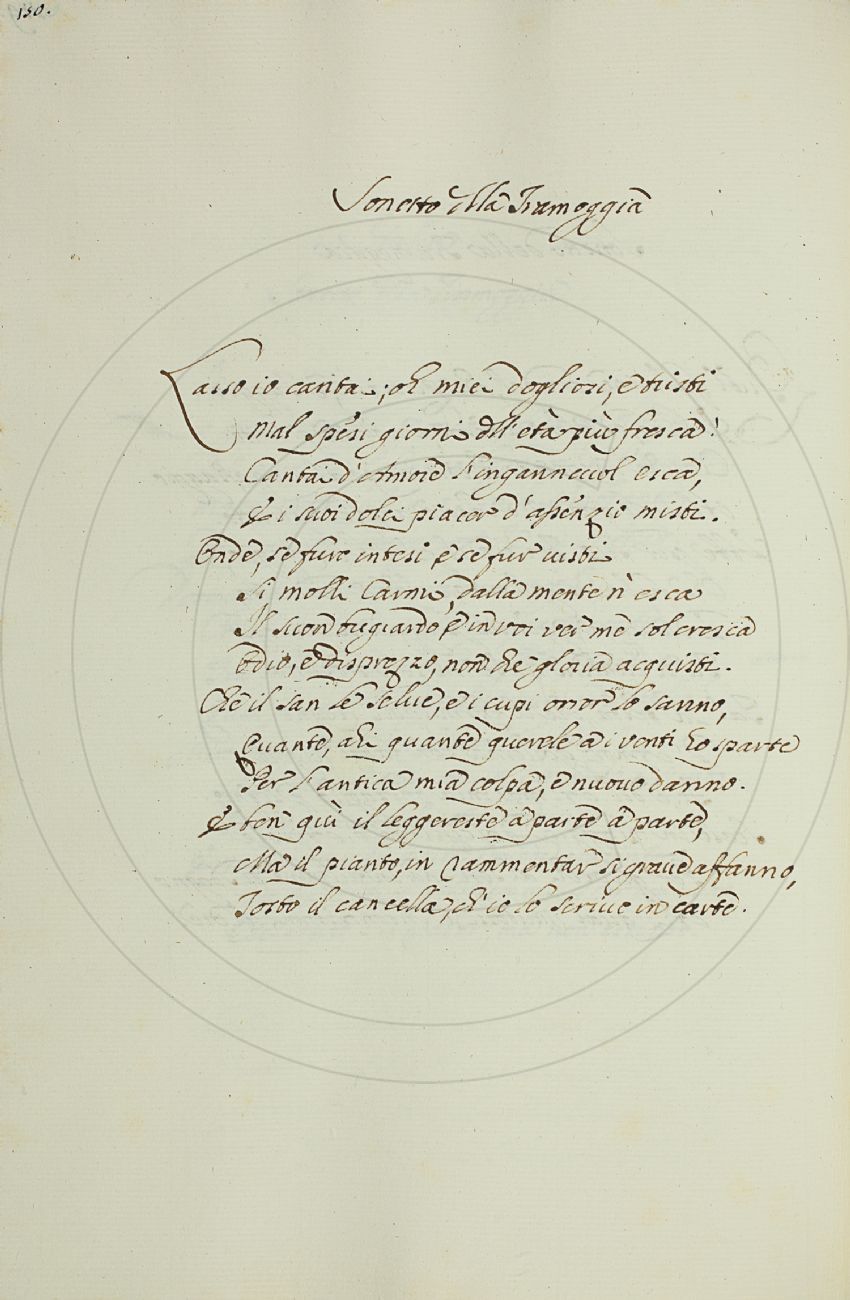 150.
Sonetto della Tramoggia
Lasso io cantai; oh miei dogliosi, e tristi
Mal spesi giorni dell'età più fresca!
Cantai d'Amore l'ingannevol esca,
E i suoi dolci piacer d'assenzio misti.
Onde, se furo intesi e se fur visti
Si molli Carmi, dalla mente n'esca
Il suon bugiardo, e in voi ver me sol cresca
Odio, e disprezzo, non che gloria acquisti.
Che il san le selve, e i cupi orror lo sanno,
Quante, ahi quante querele a i venti ho sparte
Per l'antica mia colpa, e nuovo danno.
E ben quì il leggereste a parte a parte,
Ma il pianto, in rammentar si grave affanno,
Tosto il cancella, ch'io lo scrivo in carte.